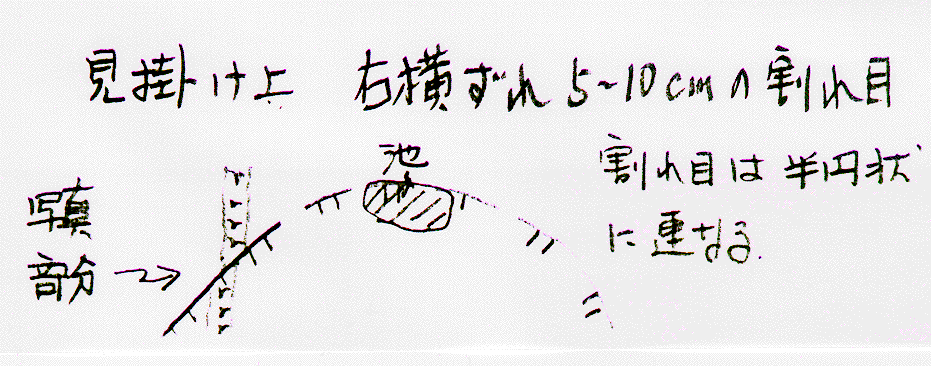 見掛け上 右横ずれ 5~10cmの割れ目
池
割れ目は半円状
に連なる.
写真
部分→